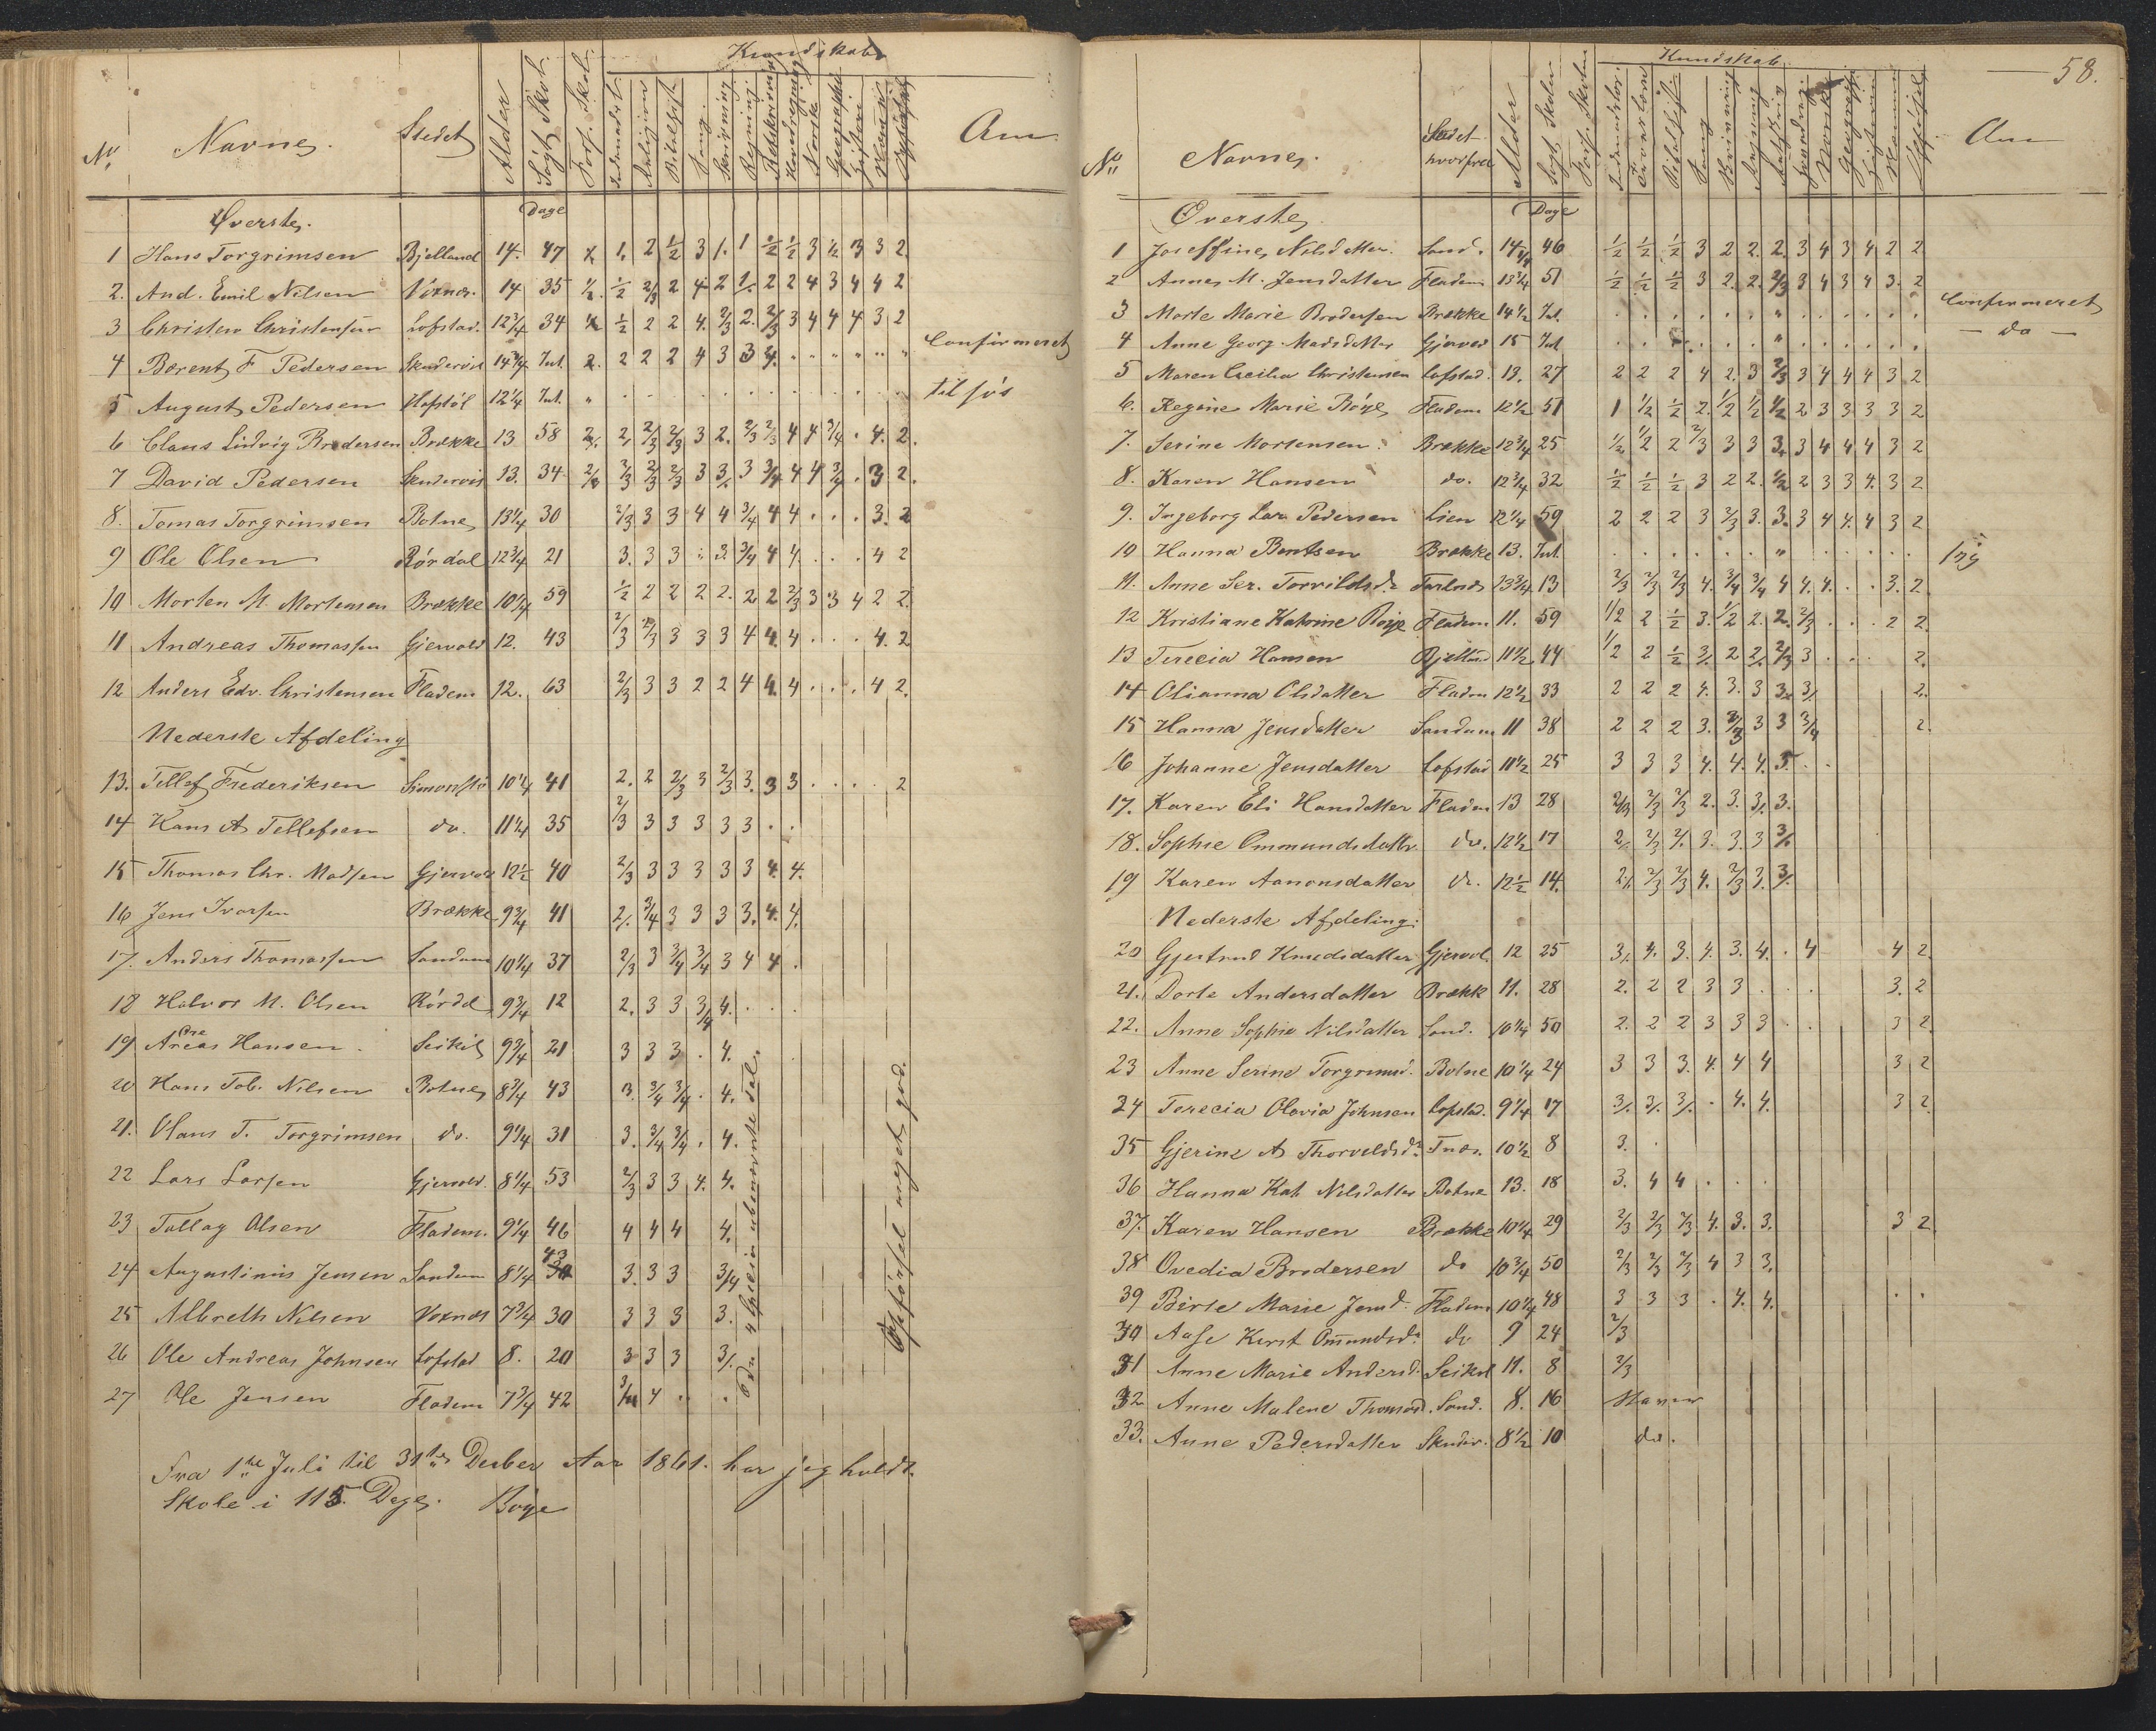 Kundskab
No Navne. Stedet Alder Søgt Skol. Fors. Skol. Indenadsl. Religion Bibelhist. Sang. Skrivning Regning Retskrivning Hovedregning Norske Geographi Historie Opførsel Anm
Øverste. Dage
1 Hans Torgrimsen Bjelland 14. 47 1. 2 ½ 3 1. 1 ½ ½ 3 ½ 3 3 2
2. And. Emil Nilsen Voxnes. 14 35 ½ ½ 2/3 2 4 2 1. 2 2 4 3 4 4 2
3 Christen Christensen Lofstad. 12¾ 34 ½ 2 2 4. 2/3 2. 2/3 3 4 4 4 3 2
4 Berent F Pedersen Skudervis 14¾ Int. 2. 2 2 2 4 3 3 4. Confirmeret
5 August Pedersen Hofstöl 12¼ Int. " til søs
6 Claus Ludvig Brodersen Brække 13 58 2. 2. 2/3 2/3 3 2. 2/3 2/3 4 4 3/4 . 4. 2.
7 David Pedersen Skudervis 13. 34 2/3 2/3 2/3 2/3 3 3. 3 3/4 4 4 3/4 . 3 2.
8. Tomas Torgrimsen Botne 13¼ 30 2/3 3 3 4 4 3/4 4 4 . . . 3. 2
9 Ole Olsen Rørdal 12¾ 21 3. 3 3 " 3. 3/4 4 4. . . . 4 2
10 Morten M. Mortensen Brække 10¼ 59 ½ 2 2 2 2. 2 2 2/3 3 3 4 2 2.
11 Andreas Thomassen Gjervold 12. 43 2/3 2/3 3 3 3 4 4. 4 . . . 4. 2
12 Anders Edv. Christensen Fladem 12. 63 2/3 3 3 2 2 4 4. 4 . . . 4 2.
Nederste Afdeling
13. Tellef Frederiksen Simonstø 10¼ 41 2. 2 2/3 3 2/3 3. 3 3 . . . . 2
14 Hans A Tellefsen do. 11¼ 35 2/3 3 3 3 3 3 . .
15 Thomas Chr. Madsen Gjervold 12½ 40 2/3 3 3 3 3 3 4. 4.
16 Jens Ivarsen Brække 9¾ 41 2/. 3/4 3 3 3 3. 4. 4.
17. Anders Thomassen Sandum 10¼ 37 2/3 3 3/4 3/4 3 4 4 .
18 Halvor M. Olsen Rørdal 9¾ 12 2. 3 3 3/4 4. . . .
19 Areas Hansen. Seikil 9¾ 21 3 3 3 . 4.
20 Hans Tob. Nilsen Botne 8¾ 43 3. 3/4 3/4 . 4.
21. Olaus T. Torgrimsen do. 9¼ 31 3. 3/4 3/4 . 4.
22 Lars Larsen Gjervold. 8¼ 53 2/3 3 3 4. 4.
23 Tallag Olsen Fladem. 9¼ 46 4 4 4 4.
24 Augustinius Jensen Sandum 8¼ 43 3. 3 3 3/4
25 Albreth Nilsen Voxnes 7¾ 30 3 3 3 3.
26 Ole Andreas Johnsen Lofstad 8. 20 3 3 3 3/.
27 Ole Jensen Fladem 7¾ 42 3/4 4 . .
4 Species ubenævnte Tal.
Opførsel meget god.
Fra 1ste Juli til 31te Decber Aar 1861. har jeg holdt
Skole i 115. Dage. Boye
58.
Kundskab
No Navne. Stedet hvorfra Alder Søgt. Skolen Fors. Skolen Sang Skrivning Regning Norske Geographi Historie Opførsel Anm
Øverste. Dage
1 Joseffine Nilsdatter. Sand. 14¼ 46 ½ ½ ½ 3 2 2. 2. 3 4 3 4 2 2
2 Anne M. Jensdatter Fladem 13¼ 51 ½ ½ ½ 3 2. 2. 2/3 3 4 3 4 3. 2
3 Marte Marie Brodersen Brække 14½ Int. Confirmeret
4 Anne Georg. Madsdatter Gjervold 15 Int — do —
5 Maren Cecilia Christensen Lofstad. 13. 27 2 2 2 4 2. 3 2/3 3 4 4 4 3 2
6. Regine Marie Boye Fladem 12½ 51 1 ½ ½ 2. ½ ½ ½ 2 3 3 3 3 2
7. Serine Mortensen. Brække 12¾ 25 ½ ½ 2 2/3 3 3 3. 3 4 4 4 3 2
8. Karen Hansen do. 12¾ 32 ½ ½ ½ 3 2 2. ½ 2 3 3 4. 3 2
9. Ingeborg Lar. Pedersen Lien 12¼ 59 2 2 2 3 2/3 3. 3. 3 4 4. 4 3 2
10 Hanna Bentsen Brække 13. Int. syg
11. Anne Ser. Torvildsd. 13¾ 13 2/3 2/3 2/3 4. 3/4 3/4 4 4. 4. . . 3. 2.
12 Kristiane Katrine Boye Fladem 11. 59 ½ 2 ½ 3. ½ 2. 2. 2/3 . . . 2 2.
13 Terecia Hansen Bjelland 11½ 44 ½ 2 ½ 3/. 2 2/. 2/3 3 . . . 2.
14 Olianna Olsdatter Fladem 12½ 33 2 2 2 4. 3. 3 3. 3/. 2.
15 Hanna Jensdatter Sandum 11 38 2 2 2 3. 2/3 3 3 3/4 2.
16 Johanne Jensdatter Lofstad 11½ 25 3 3 3 4. 4. 4. 5. . .
17. Karen Eli Hansdatter Fladem 13 28 2/3 2/3 2/3 2. 3. 3/. 3.
18. Sophie Ommundsdatter do. 12½ 17 2/. 2/3 2/. 3. 3. 3 3/.
19 Karen Aanonsdatter do. 12½ 14. 2/. 2/3 2/3 4. 2/3 3. 3/.
Nederste Afdeling.
20 Gjertrud Knudsdatter Gjervol. 12 25 3/. 4. 3. 4. 3. 4. . 4 4 2.
21. Dorte Andersdatter Brækk 11. 28 2. 2 2 3 3 . . . 3. 2
22. Anne Sophie Nilsdatter Sand. 10¼ 50 2. 2 2 3 3 3 . . 3 2.
23 Anne Serine Torgrimsd. Botne 10¼ 24 3 3 3. 4. 4 4 3 2
24 Terecia Olavia Johnsen Lofstad. 9¼ 17 3/. 3/. 3/. . 4. 4. 3 2.
35 Gjerine A Thorvaldsd. 10½ 8 3. .
36 Hanna Kat Nilsdatter Botne 13. 18 3. 4 4 . . .
37. Karen Hansen Brække 10¼ 29 2/3 2/3 2/3 4. 3. 3. 3 2
38 Ovedia Brodersen do 10¾ 50 2/3 2/3 2/3 4 3 3.
39 Birte Marie Jensd. Fladem 10¼ 48 3 3 3 . 4. 4. . .
30 Aase Kirst Omundsd. do 9 24 2/3
31 Anne Marie Andersd. Seikil 11. 8 2/3
32 Anne Malene Thomasd. Sand. 8. 16 Staver
33. Anne Pedersdatter Skuder. 8½ 10 do.